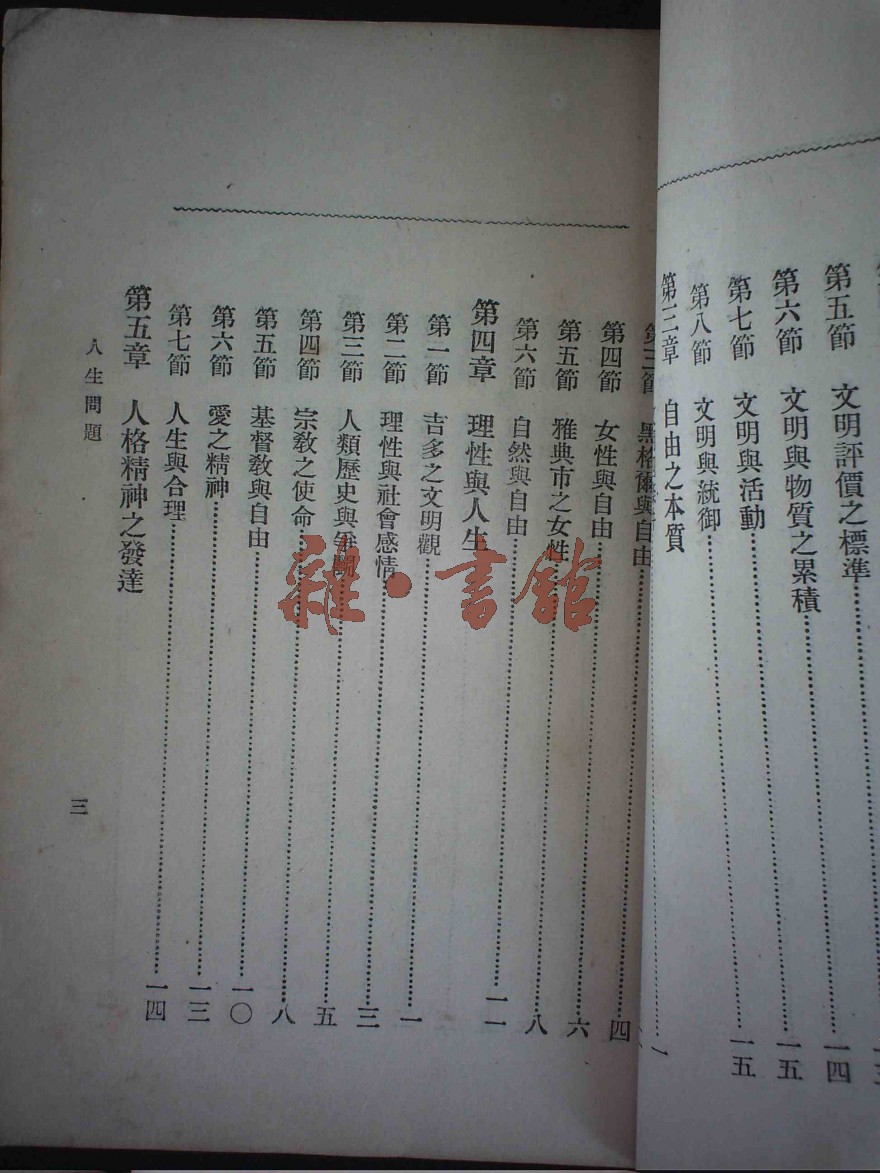 第五節 文明評價之標準
第六節 文明與物質之累積 一四
第七節 文明與活動 一五
第八節 文明與統御 一五
第三章 自由之本質
第三節 黑格爾與自由 四
第四節 女性與自由 六
第五節 雅典市之女性 八
第六節 自然與自由 一一
第四章 理性與人生
第一節 吉多之文明觀 一
第二節 理性與社會感情 三
第三節 人類歷史與爭鬬 五
第四節 宗教之使命 八
第五節 基督教與自由 一〇
第六節 愛之精神 一三
第七節 人生與合理 一四
第五章 人格精神之發達
人生問題
三
雜·書館